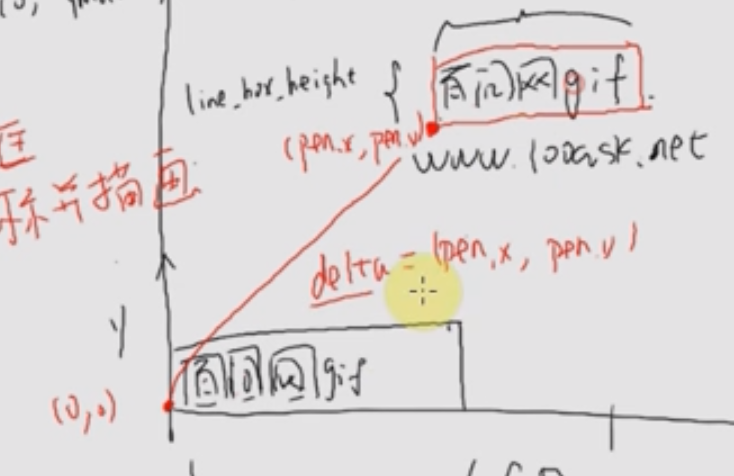 line_box_height {
百问网gif
(pen.x, pen.y)
www.100ask.net
框
标并描画
delta = (pen.x, pen.y)
Y
百问网gif
(0,0)